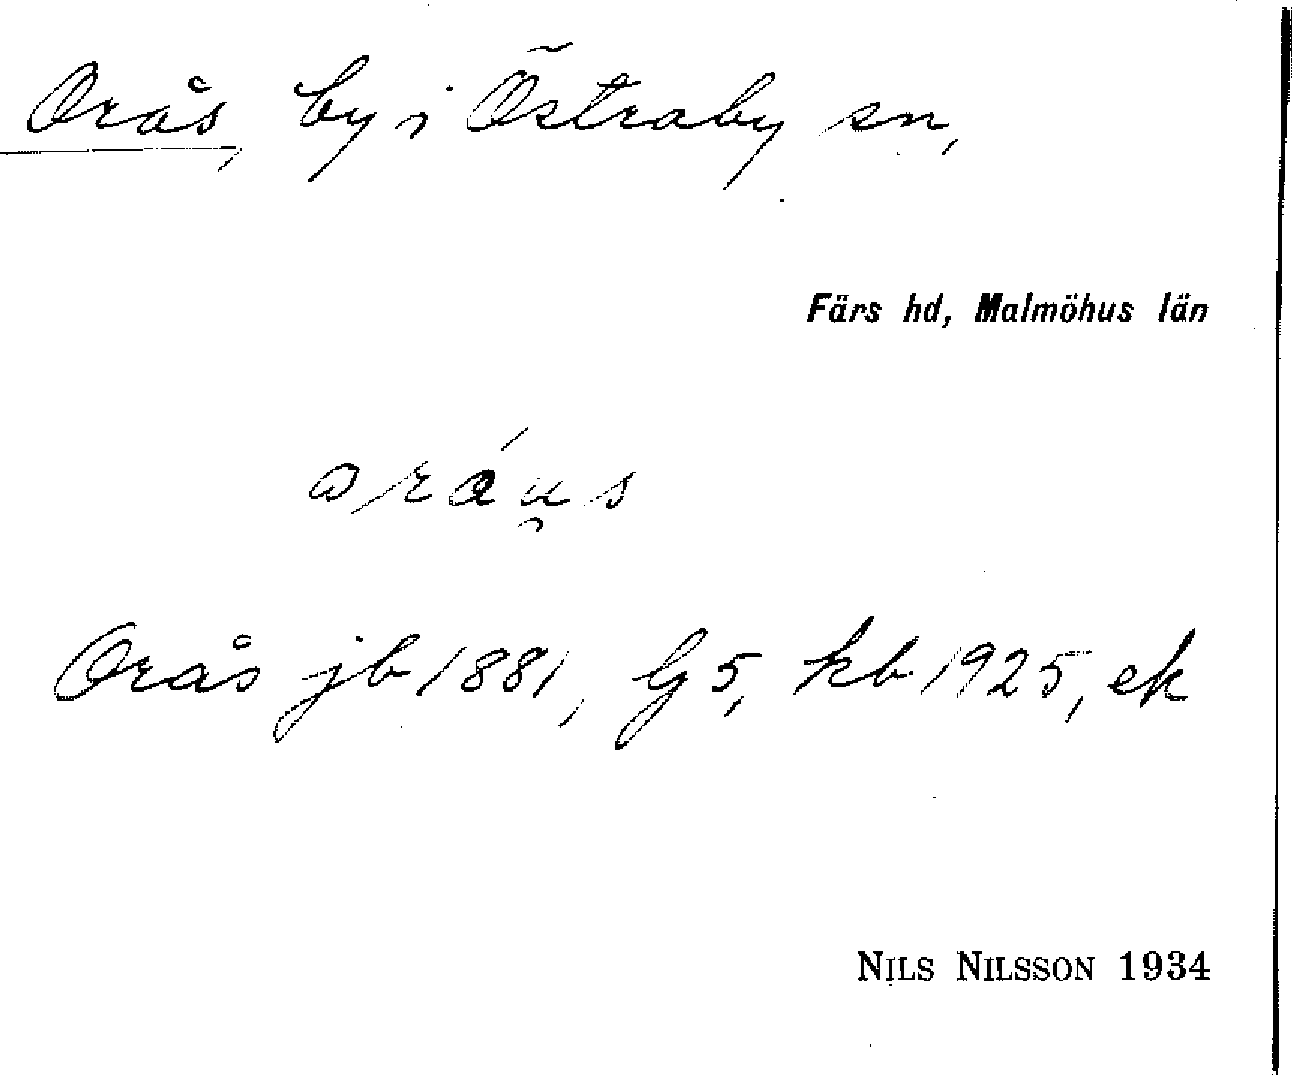 Orås, by i Östraby sn,
Färs hd, Malmöhus län
Orås jb 1881, G 5, kb 1925, ek
NILS NILSSON 1934